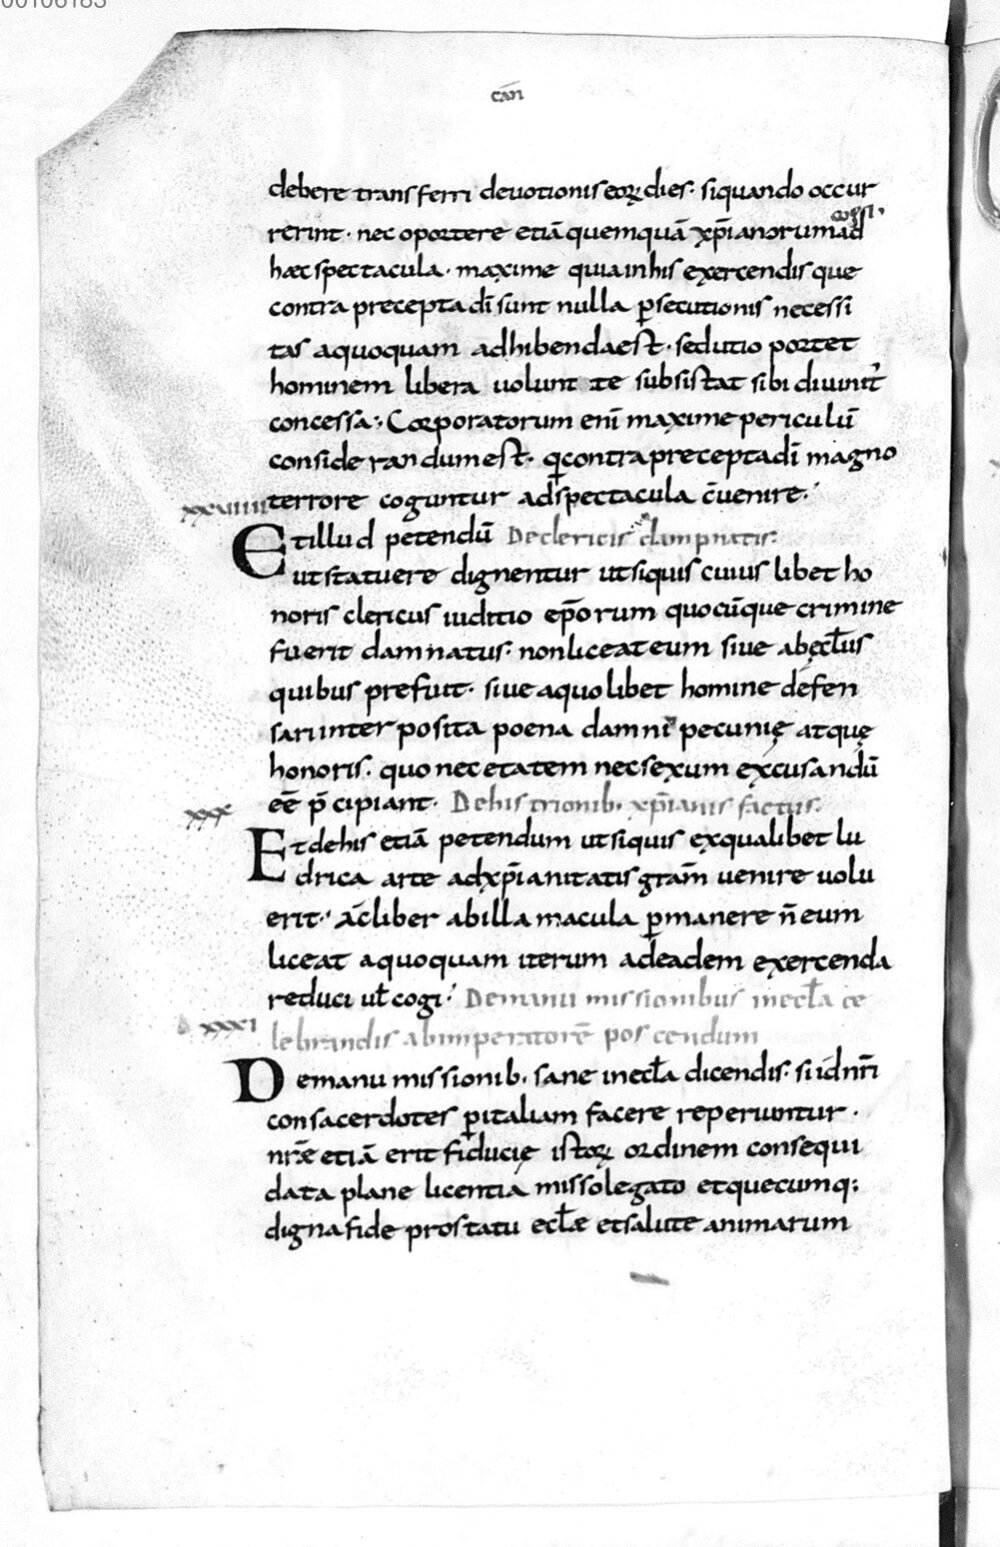 00106183
cāñ
debere transferri devotionis eoꝝ dies· siquando occur
rerint· nec oportere etiā quemquā xp̄ianorum ad
hæc spectacula· maxime quia in his exercendis que
contra precepta dī sunt nulla ꝑsecutionis necessi
tas aquoquam adhibenda est· sed uti oportet
hominem libera uoluntate subsistat sibi diuinit᷒
concessa·; Corporatorum enī maxime periculū
considerandum est· q contra precepta dī magno
terrore coguntur ad spectacula c̄uenire·'
xxviiii
Et illud petendū De clericis dampnatis·
ut statuere dignentur ut siquis cuius libet ho
noris clericus iuditio ep̄orum quocūque crimine
fuerit damnatus· non liceat eum siue ab ęcl̄iis
quibus prefuit· siue aquolibet homine defen
sari interposita poena damni pecunię atquę
honoris· quo nec etatem nec sexum excusandū
eē p̄cipiant· De histrionib· xp̄ianis factis·
xxx
Et de his etiā petendum ut siquis ex qualibet lu
drica arte ad xp̄ianitatis grām uenire uolu
erit·' ac liber ab illa macula ꝑmanere n̄ eum
liceat aquoquam iterum ad eadem exercenda
reduci ul̄ cogi·' De manumissionibus in ecl̄a ce
lebrandis ab imperatorē poscendum
xxxi
De manumissionib· sane in ecl̄a dicendis· si id nr̄i
consacerdotes ꝑ italiam facere reperiuntur·
nrǣ etiā erit fiducię istoꝝ ordinem consequi
data plane licentia misso legato et quecumq;
digna fide pro statu ecl̄æ et salute animarum